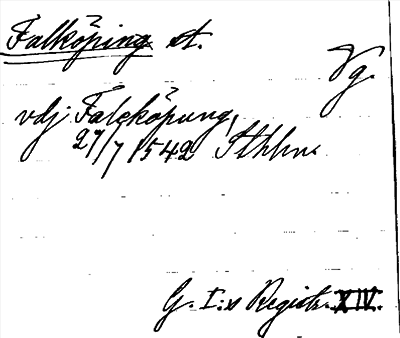 Falköping st.
Vg.
vdj Falcköpung,
27/7 1542 Sthhm.
G. I:s Registr. XIV.